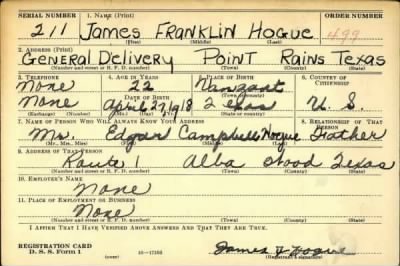 SERIAL NUMBER 1. NAME (Print) ORDER NUMBER
211 James Franklin Hogue 499
(First) (Middle) (Last)
2. ADDRESS (Print)
General Delivery Point Rains Texas
(Number and street or R. F. D. number) (Town) (County) (State)
3. TELEPHONE 4. AGE IN YEARS 5. PLACE OF BIRTH 6. COUNTRY OF CITIZENSHIP
None 22 Vanzant
DATE OF BIRTH (Town or county)
None April 27, 1918 Texas U. S.
(Exchange) (Number) (Mo.) (Day) (Yr.) (State or country)
7. NAME OF PERSON WHO WILL ALWAYS KNOW YOUR ADDRESS 8. RELATIONSHIP OF THAT PERSON
Mr. Edgar Campbell Hogue Father
(Mr., Mrs., Miss) (First) (Middle) (Last)
9. ADDRESS OF THAT PERSON
Route 1 Alba Wood Texas
(Number and street or R. F. D. number) (Town) (County) (State)
10. EMPLOYER'S NAME
None
11. PLACE OF EMPLOYMENT OR BUSINESS
None
(Number and street or R. F. D. number) (Town) (County) (State)
I AFFIRM THAT I HAVE VERIFIED ABOVE ANSWERS AND THAT THEY ARE TRUE.
REGISTRATION CARD
D. S. S. Form 1 16—17105 James F Hogue
(Registrant's signature)